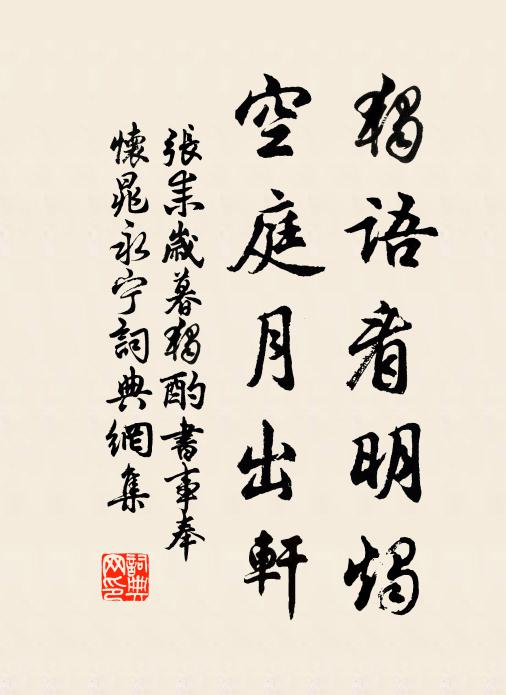 獨語看明燭
空庭月出軒
張耒歲暮獨酌書事奉
懷晁永宁詞典網集
詞典网印